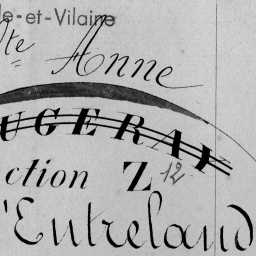 le-et-Vilaine
Ste Anne
UGERAY
ction Z 12
l'Entreland